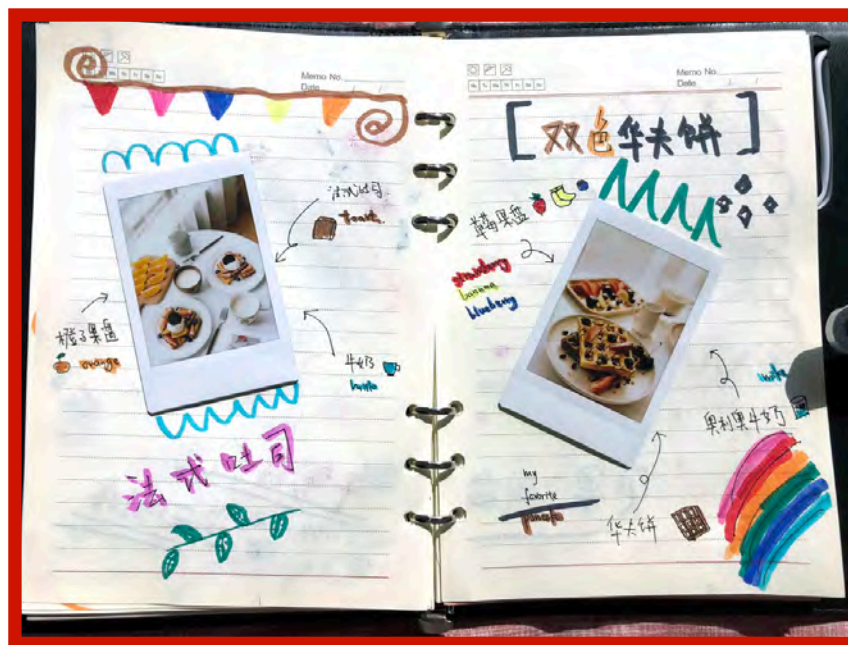 Memo No.
Date / /
法式吐司
toast
橙子果盘
orange
牛奶
法式吐司
Memo No.
Date / /
[双色华夫饼]
草莓果盘
strawberry
banana
blueberry
奥利奥牛奶
my
favorite
华夫饼